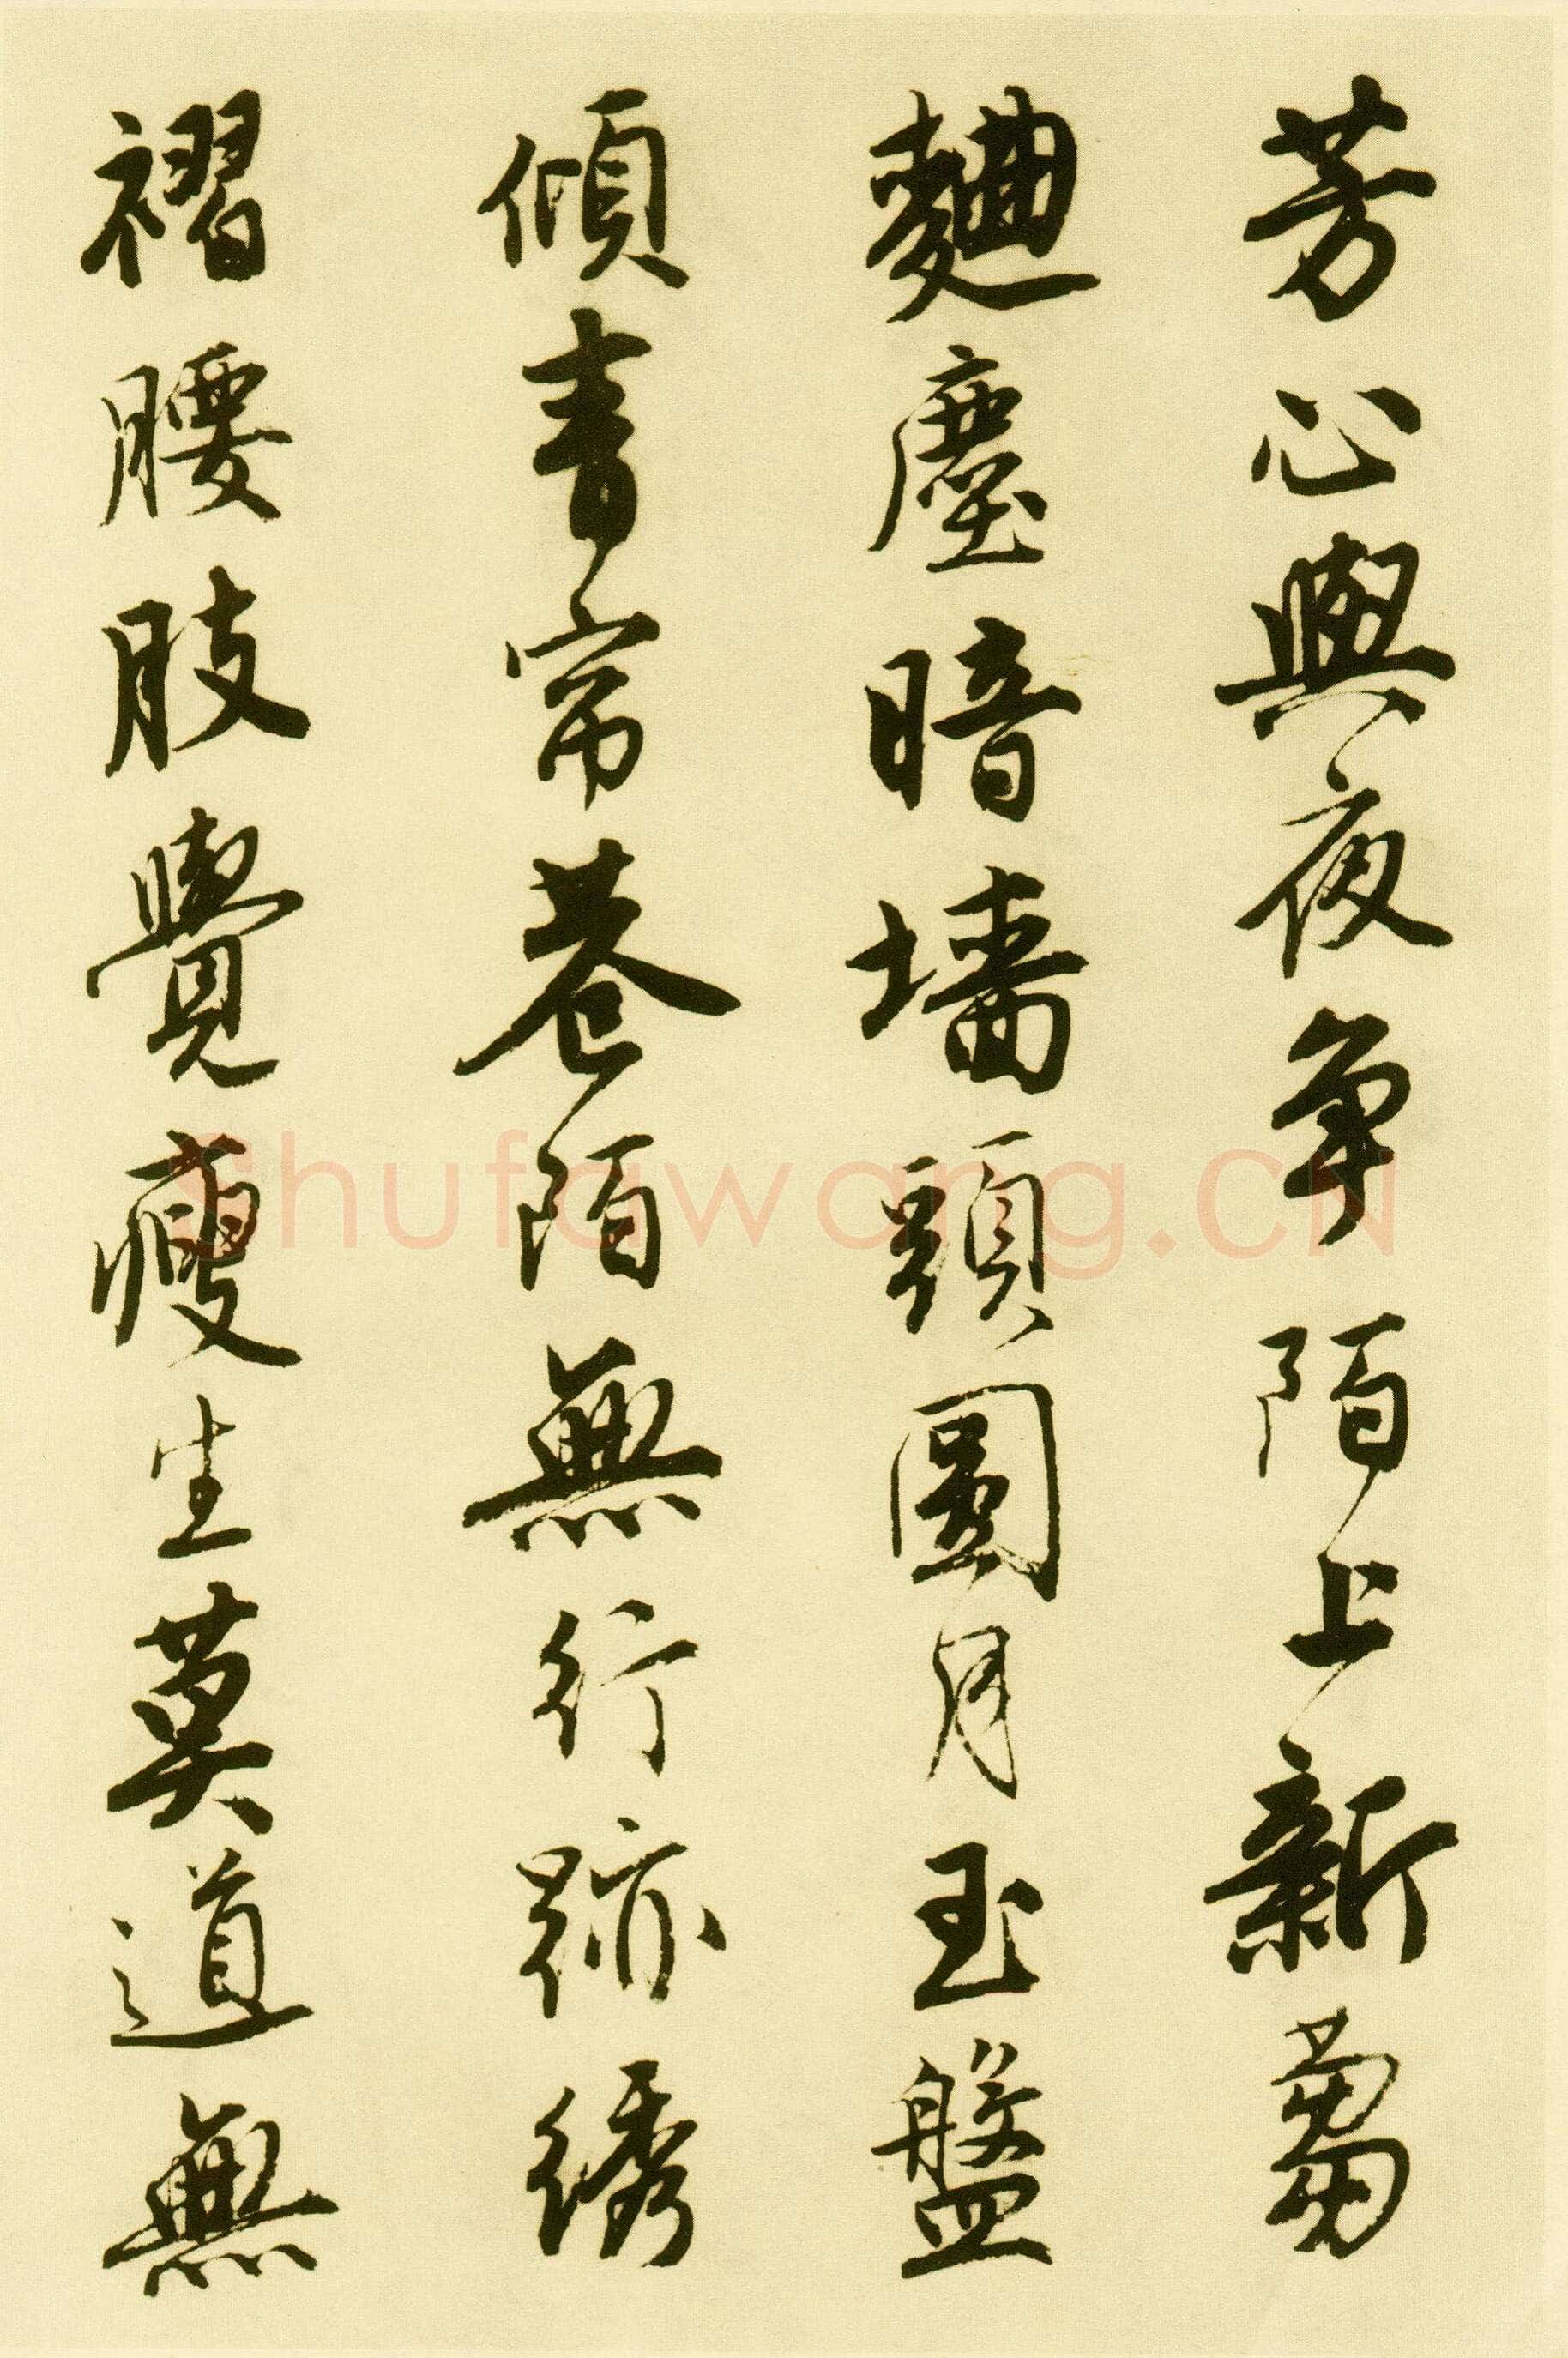 芳心與夜争陌上新蒭
麯塵暗墙頭圓月玉盤
傾青帘巷陌無行跡綉
褶腰肢覺瘦生莫道無
shufawang.CN